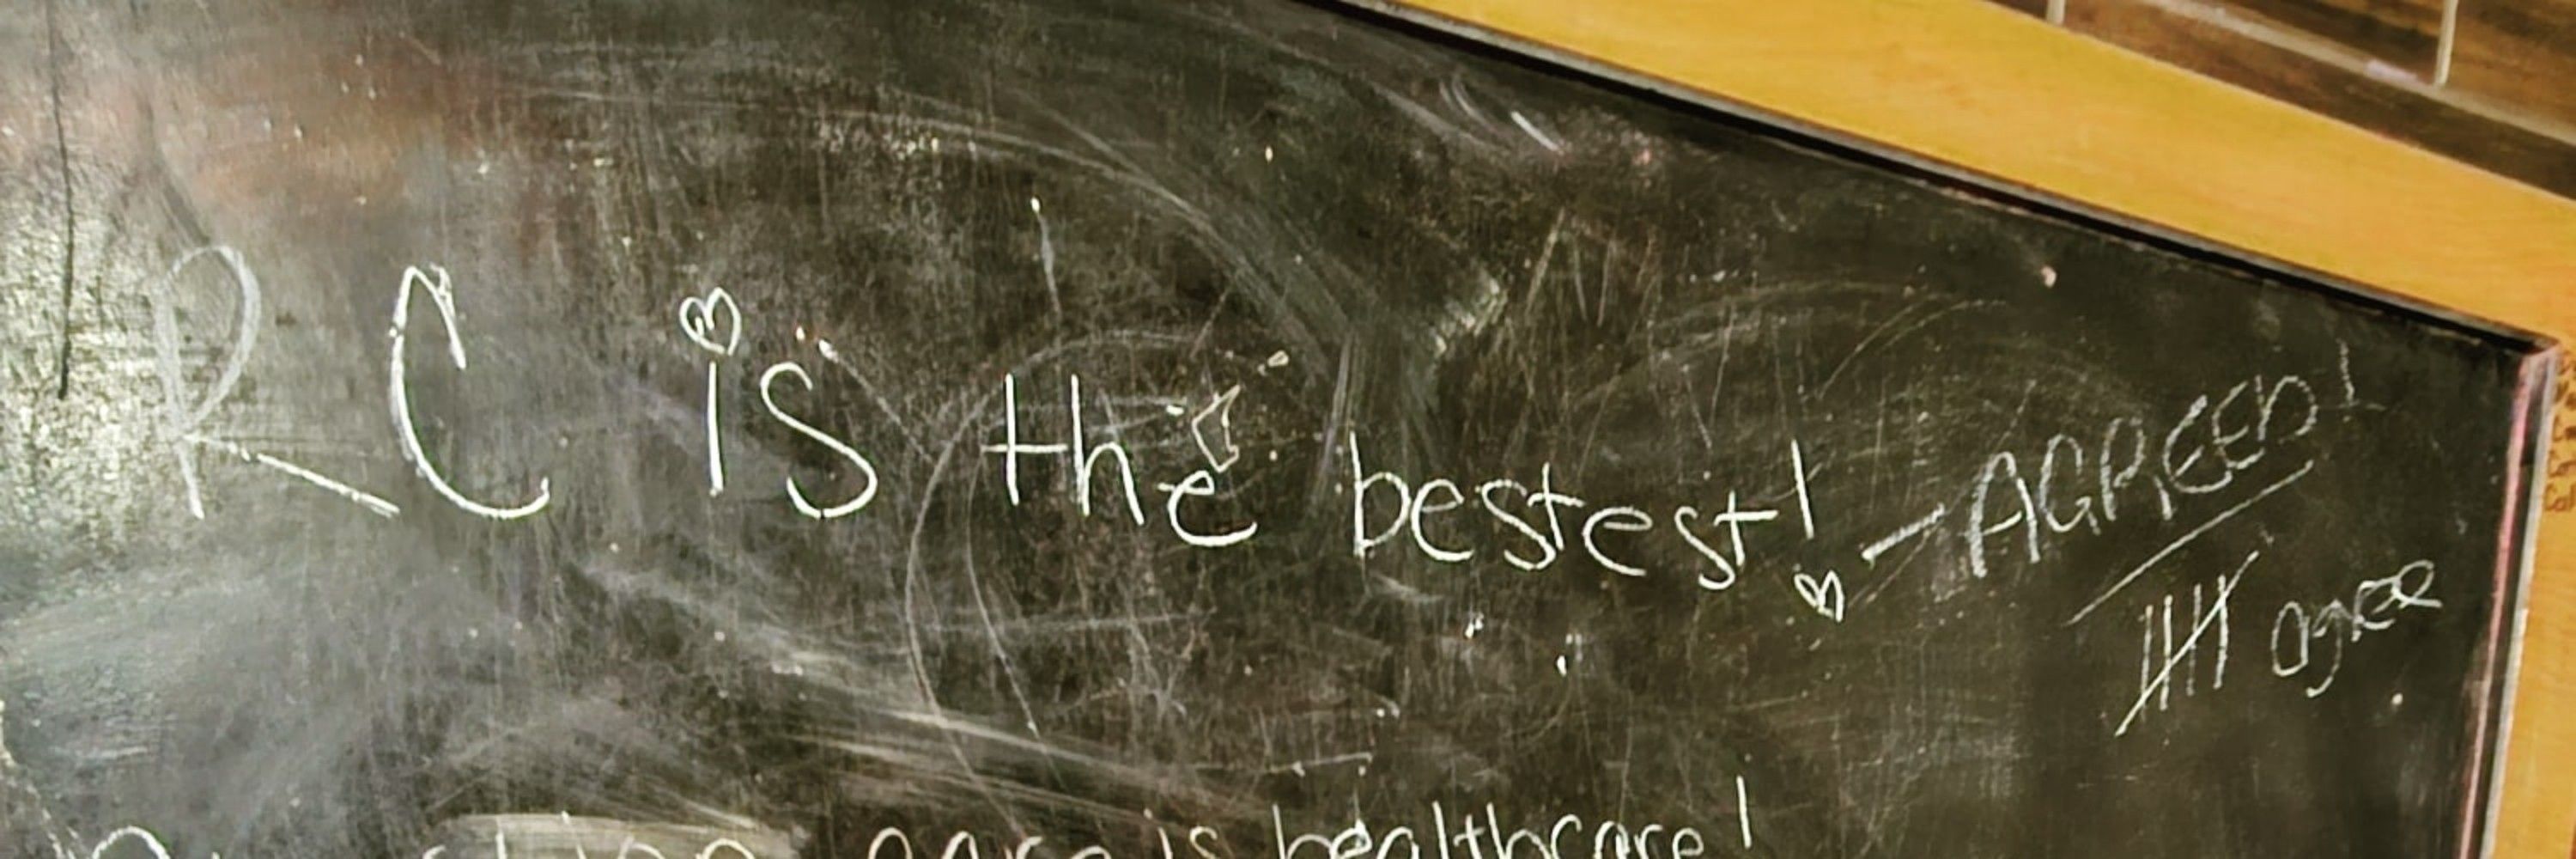 RC is the bestest! - AGREED!
agree
care is healthcare!